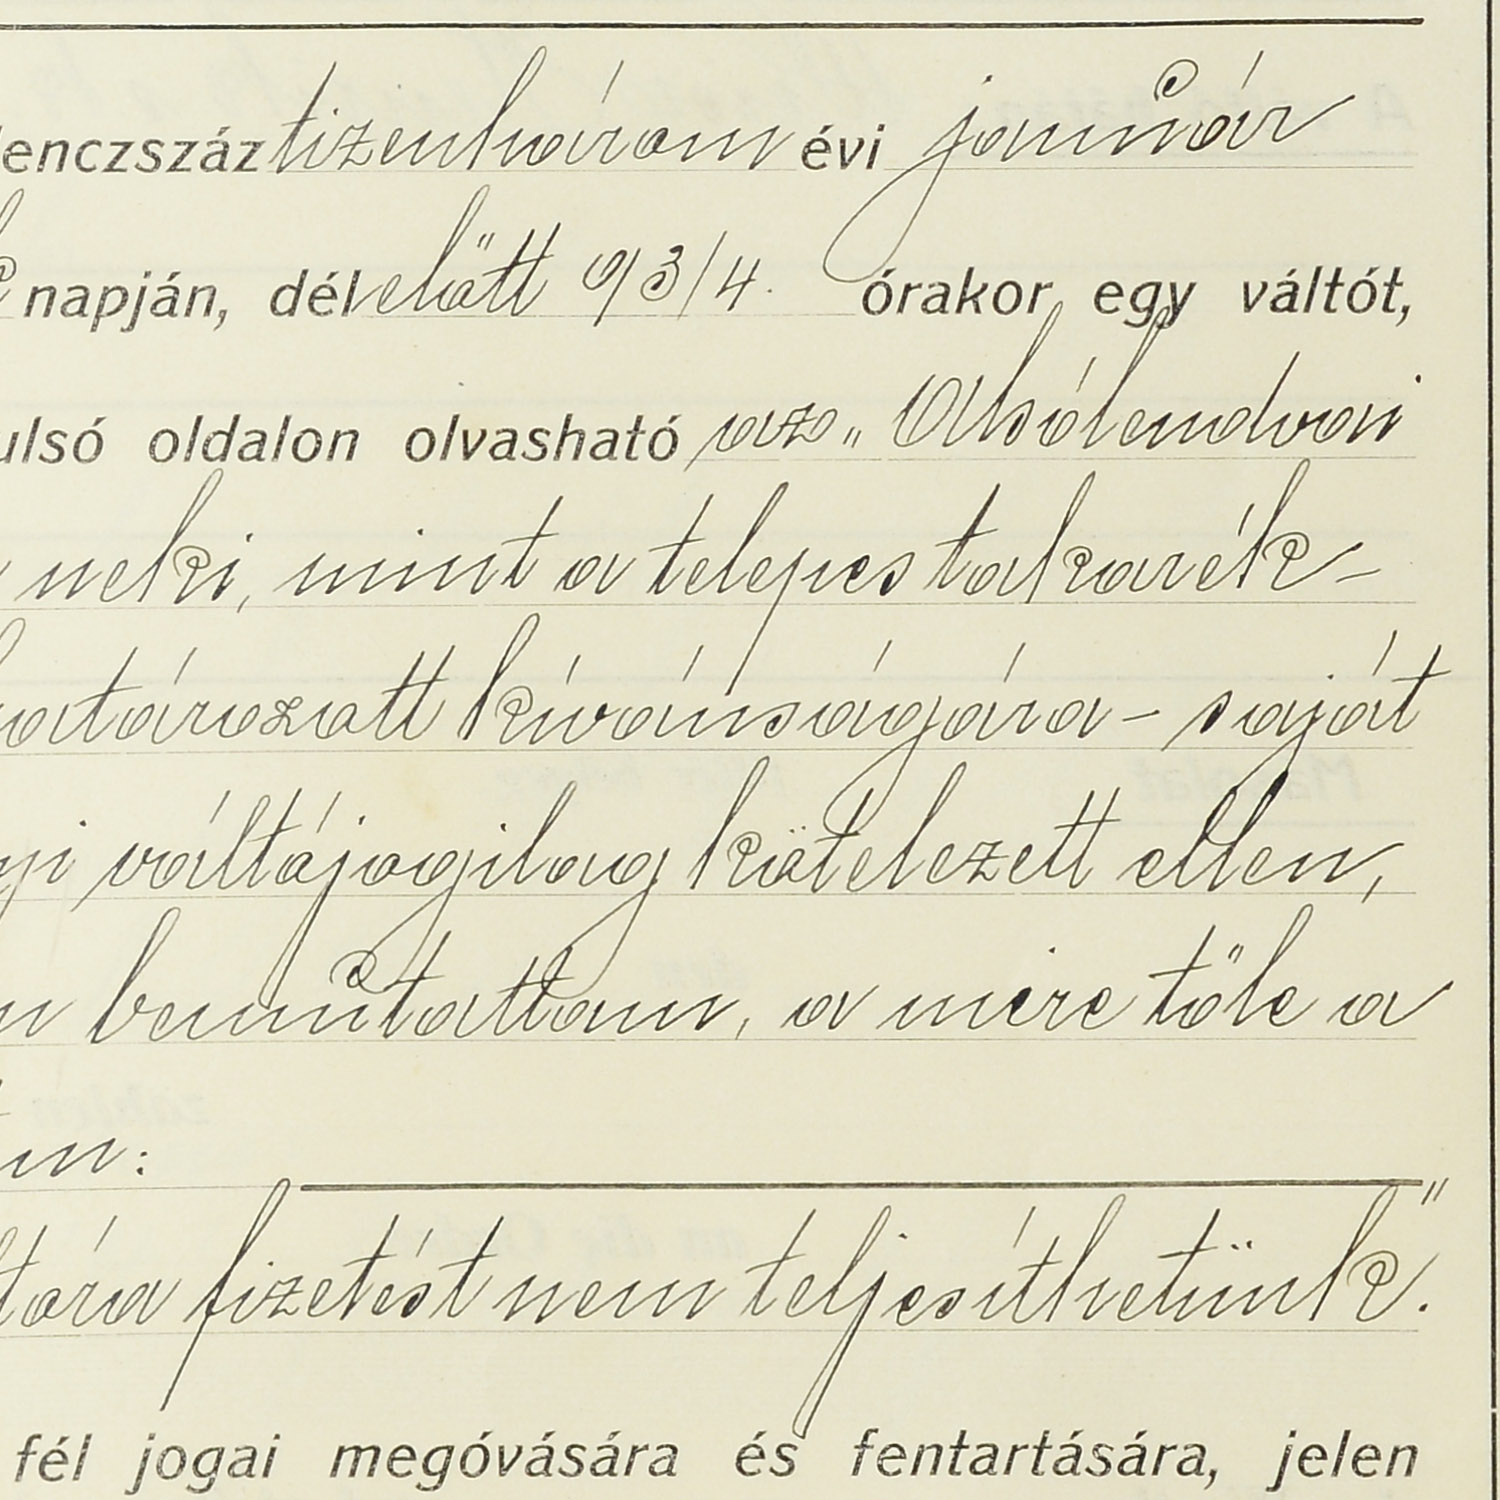 lenczszáz tizenhárom évi január
napján, délelőtt 9 3/4. órakor egy váltót,
ulsó oldalon olvasható az „Alsólendvai
neki, mint a telepes takarék-
határozott kívánságára – saját
váltójogilag kötelezett ellen,
bemutattam, a mire tőle a
:
fizetést nem teljesíthetünk."
fél jogai megóvására és fentartására, jelen